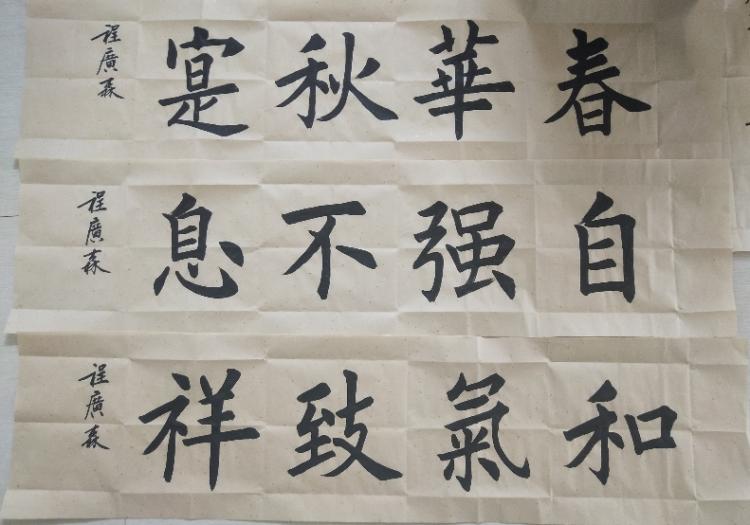 春華秋寔
程廣森
自强不息
程廣森
和氣致祥
程廣森